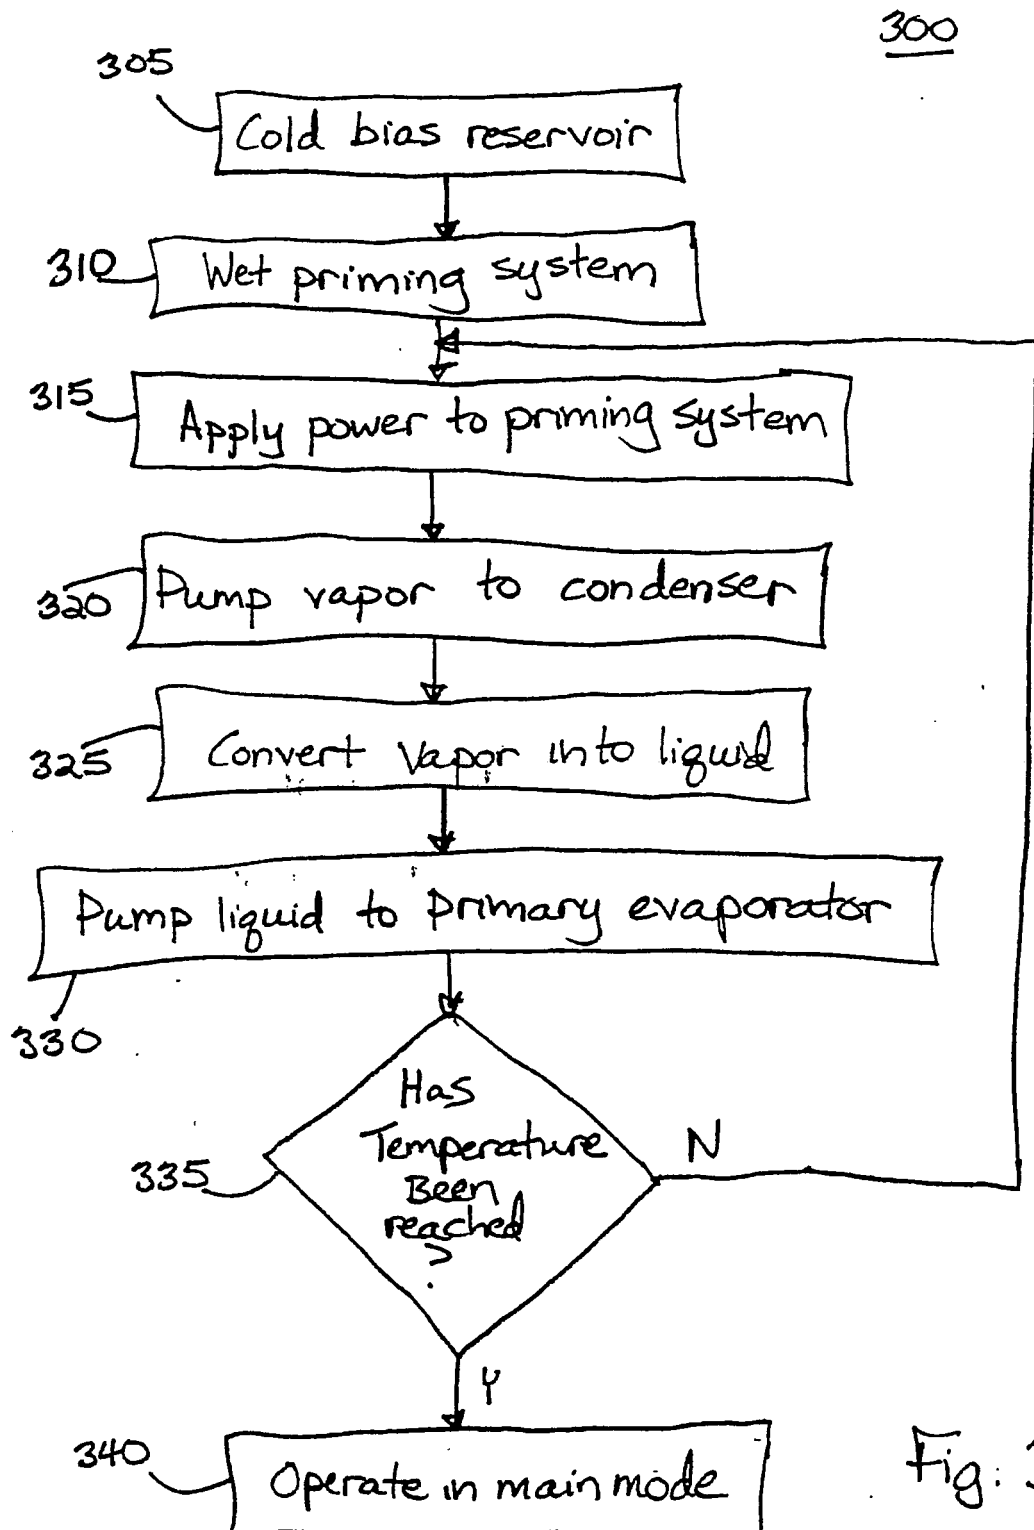 300
305
Cold bias reservoir
310
Wet priming system
315
Apply power to priming system
320
Pump vapor to condenser
325
Convert vapor into liquid
Pump liquid to primary evaporator
330
Has
Temperature
Been
reached
?
335
N
Y
340
Operate in main mode
Fig. 3